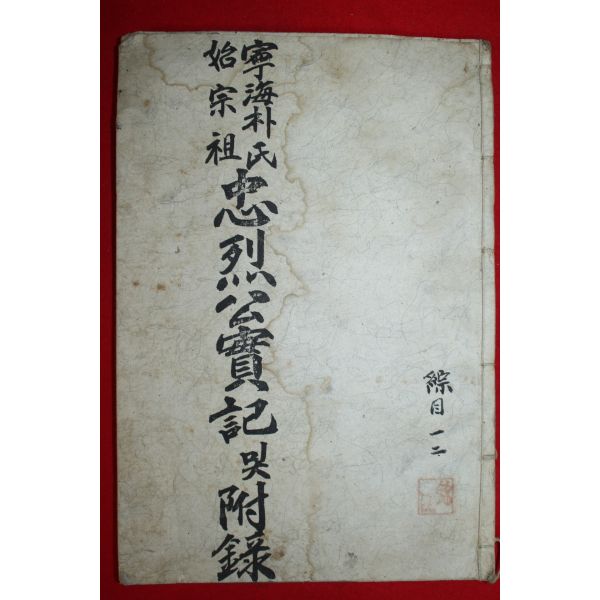 寧海朴氏
始宗祖
忠烈公實記및附錄
綜目 一二